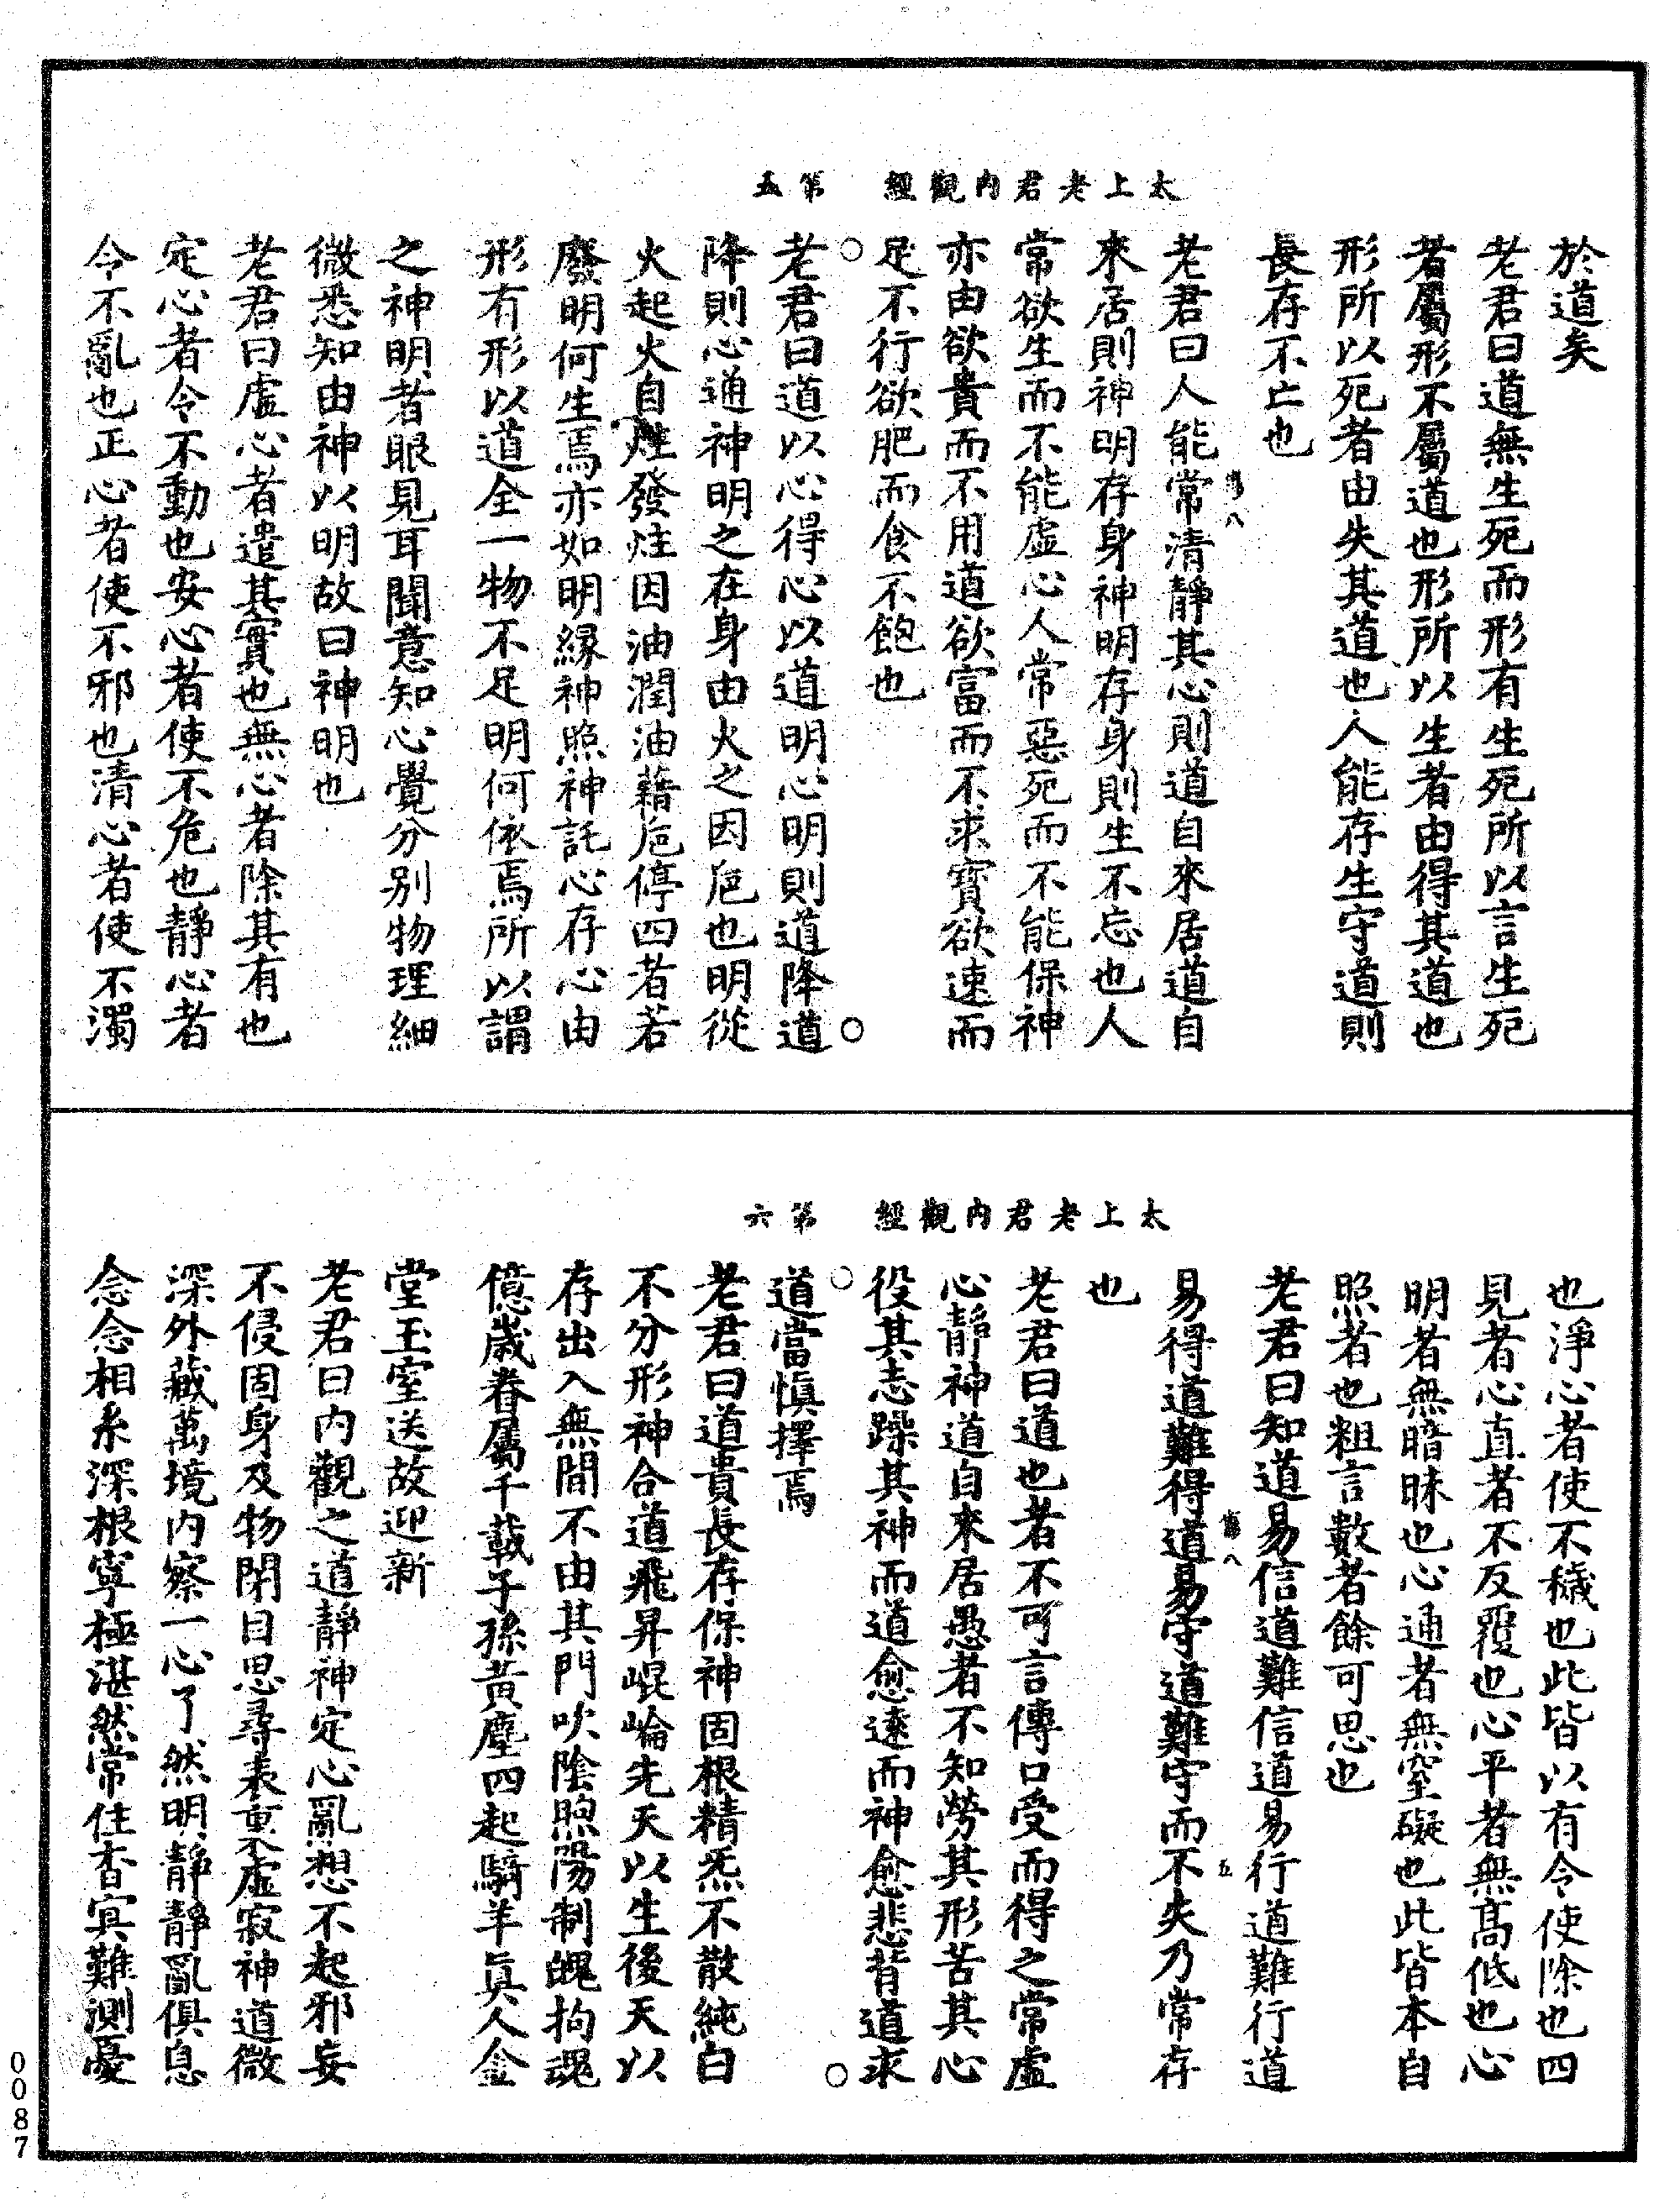 太上老君內觀經　第五
於道矣
老君曰道無生死而形有生死所以言生死
者屬形不屬道也形所以生者由得其道也
形所以死者由失其道也人能存生守道則
長存不亡也
老君曰人能常清靜其心則道自來居道自
來居則神明存身神明存身則生不忘也人
常欲生而不能虛心人常惡死而不能保神
亦由欲貴而不用道欲富而不求寶欲速而
足不行欲肥而食不飽也
老君曰道以心得心以道明心明則道降道
降則心通神明之在身由火之因巵也明從
火起火自炷發炷因油潤油藉巵停四者若
廢明何生焉亦如明緣神照神託心存心由
形有形以道全一物不足明何依焉所以謂
之神明者眼見耳聞意知心覺分別物理細
微悉知由神以明故曰神明也
老君曰虛心者遣其實也無心者除其有也
定心者令不動也安心者使不危也靜心者
令不亂也正心者使不邪也清心者使不濁
太上老君內觀經　第六
也淨心者使不穢也此皆以有令使除也四
見者心直者不反覆也心平者無高低也心
明者無暗昧也心通者無窒礙也此皆本自
照者也粗言數者餘可思也
老君曰知道易信道難信道易行道難行道
易得道難得道易守道難守而不失乃常存
也
老君曰道也者不可言傳口受而得之常虛
心靜神道自來居愚者不知勞其形苦其心
役其志躁其神而道愈遠而神愈悲背道求
道當慎擇焉
老君曰道貴長存保神固根精炁不散純白
不分形神合道飛昇崐崘先天以生後天以
存出入無間不由其門吹陰煦陽制魄拘魂
億歲眷屬千載子孫黃塵四起騎羊真人金
堂玉室送故迎新
老君曰內觀之道靜神定心亂想不起邪妄
不侵固身及物閉目思尋表裏虛寂神道微
深外藏萬境內察一心了然明靜靜亂俱息
念念相系深根寧極湛然常住杳冥難測憂
0087